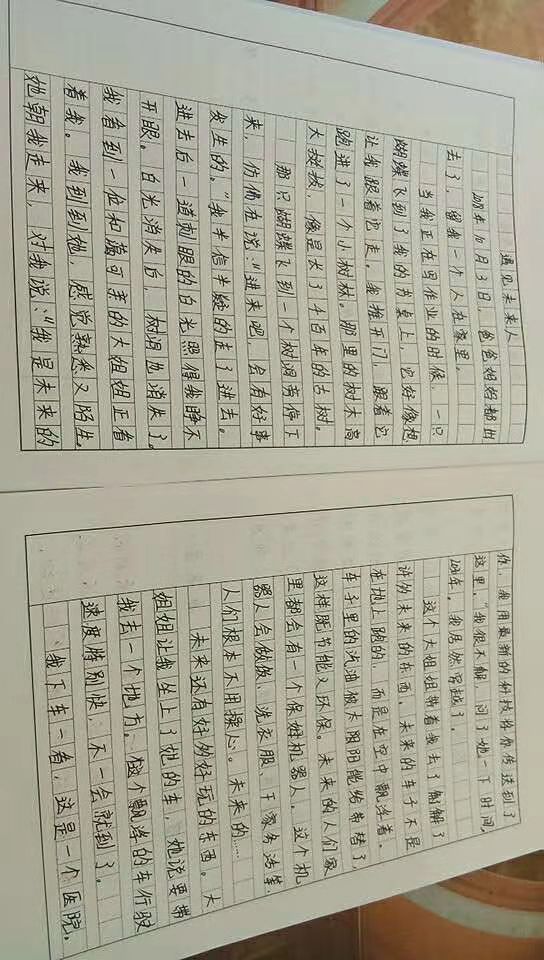 遇见未来人
208年10月3日，爸爸妈妈都出
去了，留我一个人在家里。
当我正在写作业的时候，一只
蝴蝶飞到了我的书桌上，它好像想
让我跟着它走。我推开门，跟着它
跑进了一个小树林。那里的树木高
大挺拔，像是长了千百年的古树。
那只蝴蝶飞到一个树洞旁停下
来，仿佛在说：“进来吧，会有好事
发生的。”我半信半疑的走了进去。
进去后一道刺眼的白光照得我睁不
开眼。白光消失后，树洞也消失了。
我看到一位和蔼可亲的大姐姐正看
着我。我到到她，感觉熟悉又陌生。
她朝我走来，对我说：“我是未来的
你，我用最新的科技将你传送到了
这里。”我很不解，问了她一下时间，
年。我居然穿越了。
这个大姐姐带着我去了解了
许多未来的东西。未来的车子不是
在地上跑的，而是在空中飘浮着。
车子里的汽油被太阳能给带替了，
这样既节能又环保。未来的人们家
里都会有一个保姆机器人。这个机
器人会做饭、洗衣服、干家务活等，
人们根本不用操心。未来的……
未来还有好多好玩的东西。大
姐姐让我坐上了她的车，她说要带
我去一个地方。这个飘浮的车行驶
速度特别快，不一会就到了。
我下车一看，这是一个医院。